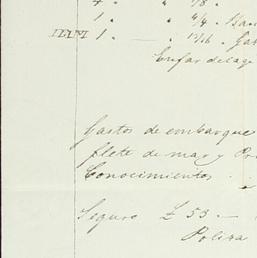 4 " " 7/8 "
1 " " 4/4 "
1 " " 13/16 "
Enfardelage
Gastos de embarque
flete de mar y
Conocimientos
Seguro £ 53.—
Poliza